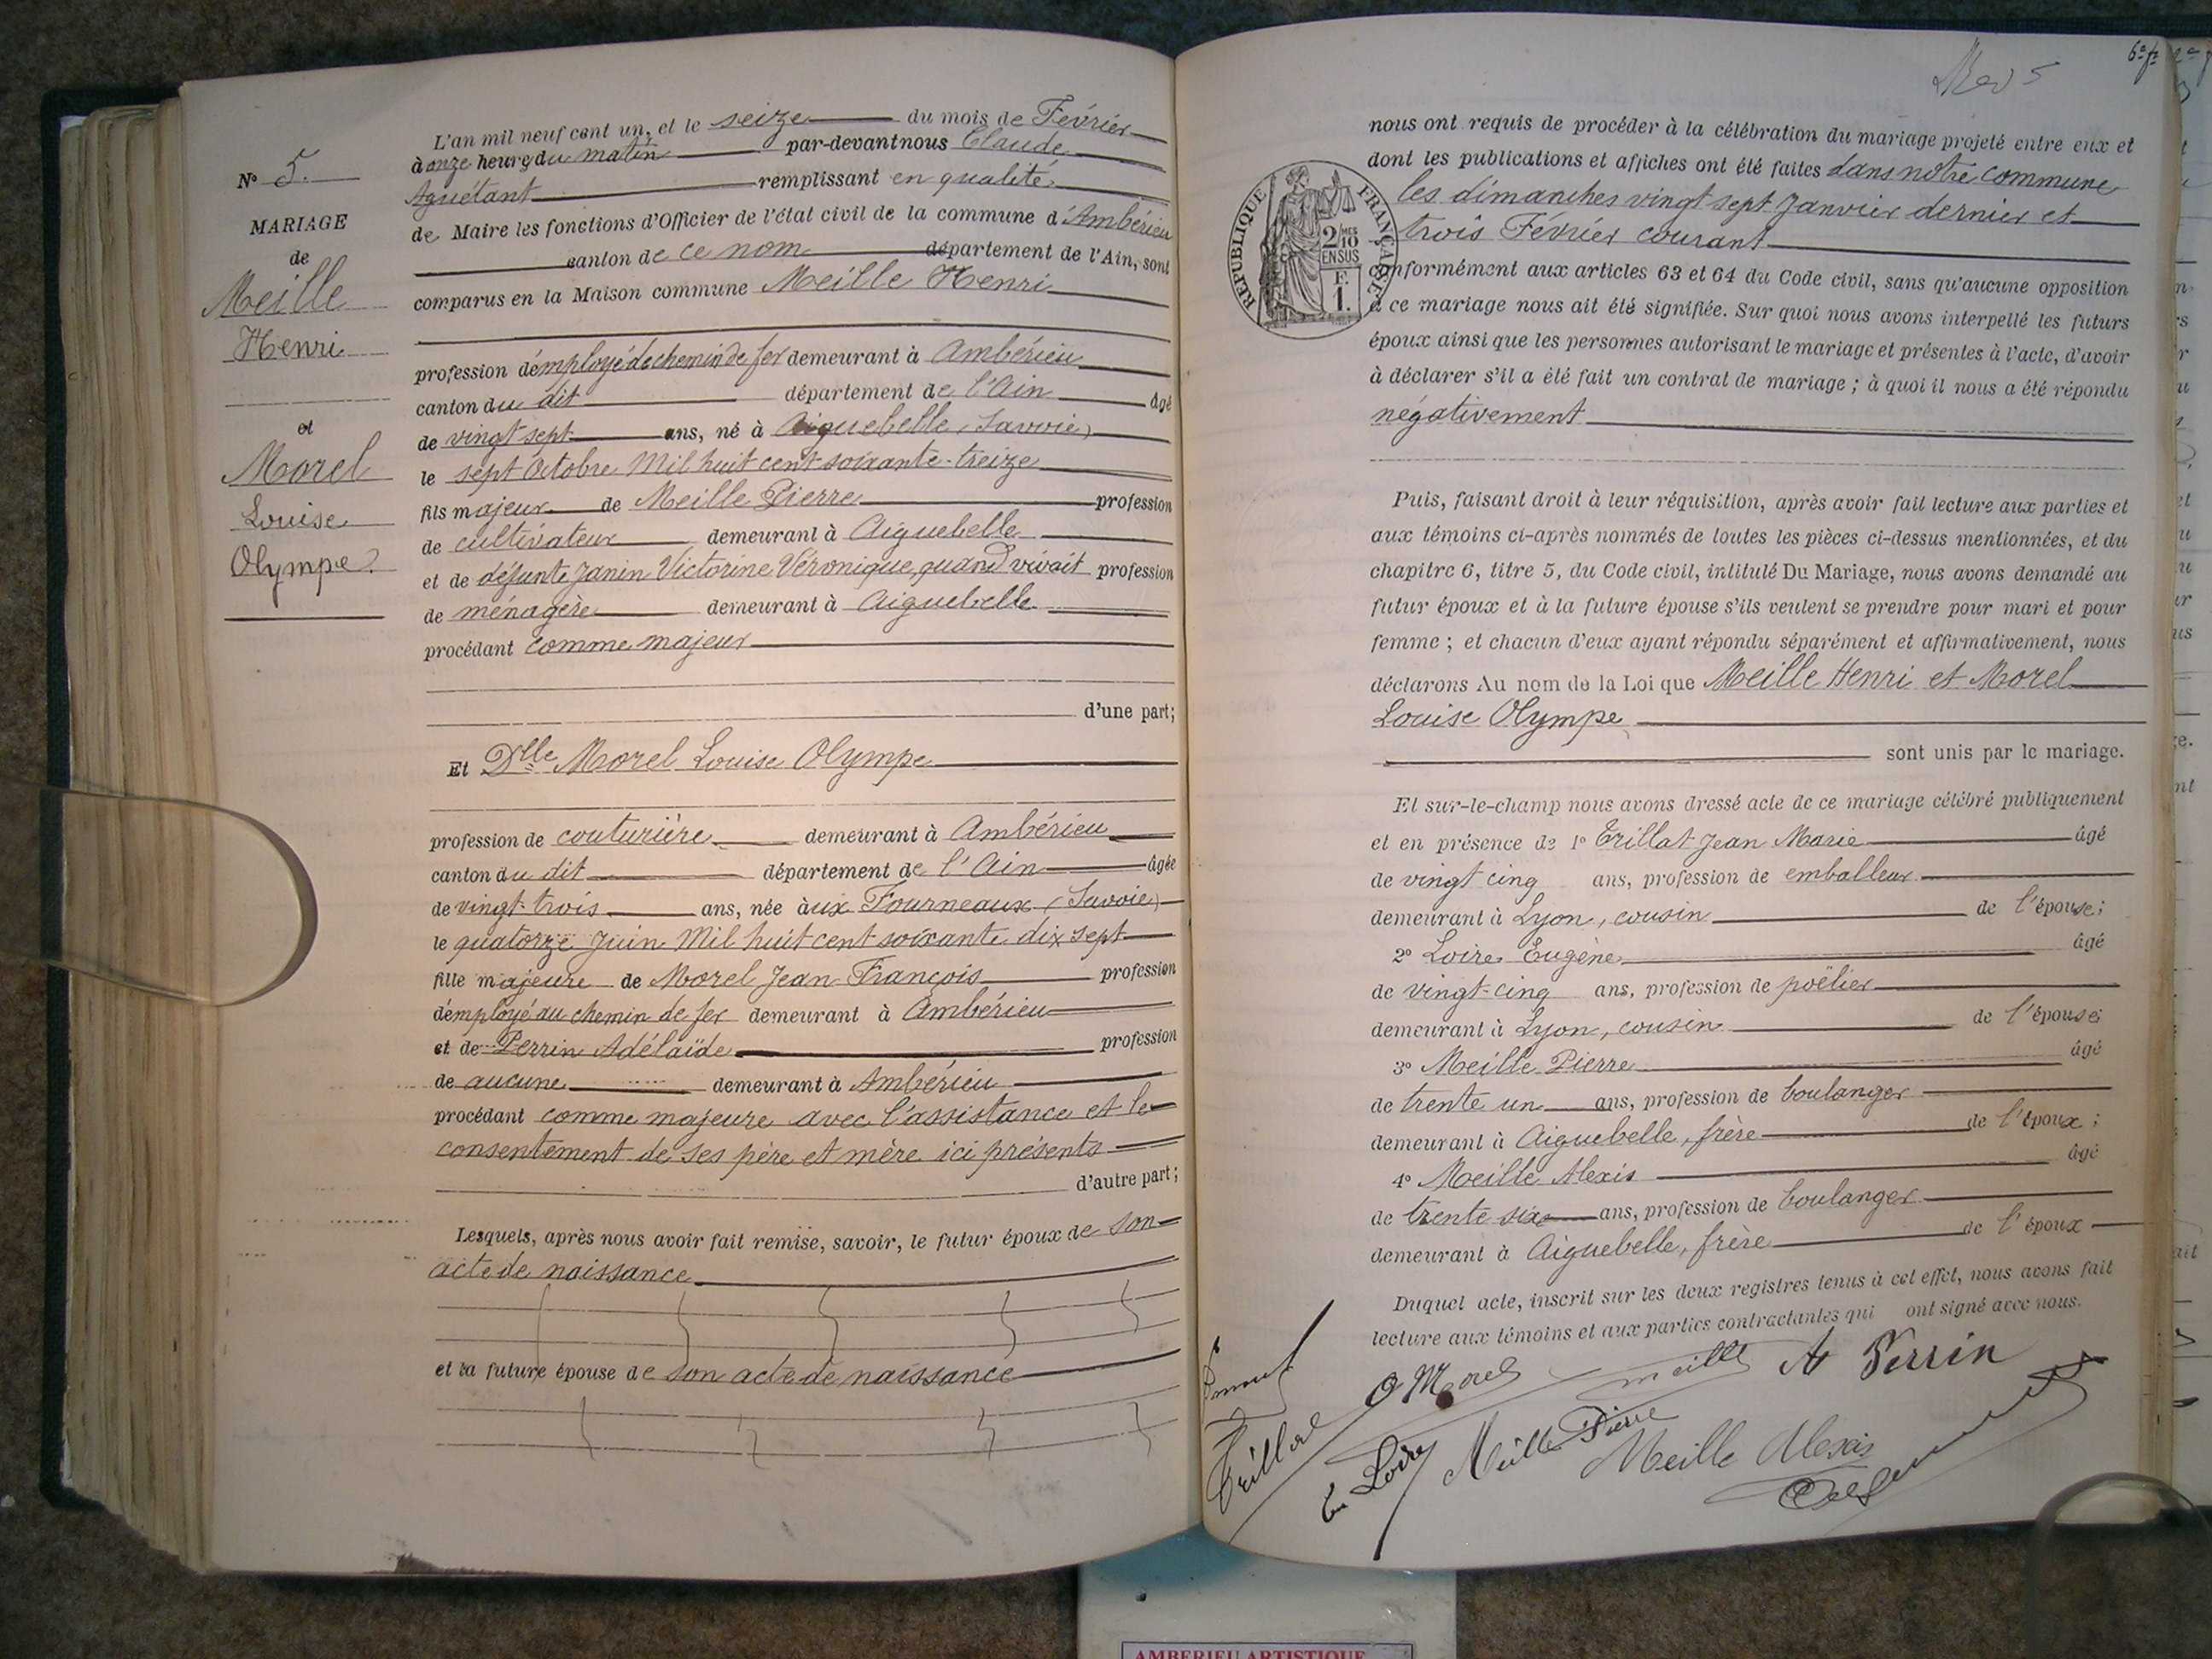 L'an mil neuf cent un, et le seize du mois de Février
à onze heures du matin par-devant nous Claude
Aguétant remplissant en qualité
de Maire les fonctions d'Officier de l'état civil de la commune d'Ambérieu
canton de ce nom département de l'Ain, sont
comparus en la Maison commune Meille Henri
profession d'employé de chemin de fer demeurant à Ambérieu
canton du dit département de l'Ain âgé
de vingt sept ans, né à Aiguebelle (Savoie)
le sept Octobre Mil huit cent soixante-treize
fils majeur de Meille Pierre profession
de cultivateur demeurant à Aiguebelle
et de défunte Janin Victorine Véronique, quand vivait profession
de ménagère demeurant à Aiguebelle
procédant comme majeur
d'une part;
Et Dlle Morel Louise Olympe
profession de couturière demeurant à Ambérieu
canton du dit département de l'Ain âgée
de vingt-trois ans, née aux Fourneaux (Savoie)
le quatorze Juin Mil huit cent soixante dix sept
fille majeure de Morel Jean-François profession
d'employé au chemin de fer demeurant à Ambérieu
et de Perrin Adélaïde profession
de aucune demeurant à Ambérieu
procédant comme majeure avec l'assistance et le
consentement de ses père et mère ici présents
d'autre part;
Lesquels, après nous avoir fait remise, savoir, le futur époux de son
acte de naissance
et la future épouse de son acte de naissance
No 5.
MARIAGE
de
Meille
Henri
et
Morel
Louise
Olympe
6e
nous ont requis de procéder à la célébration du mariage projeté entre eux et
dont les publications et affiches ont été faites dans notre commune
les dimanches vingt sept Janvier dernier et
trois Février courant
conformément aux articles 63 et 64 du Code civil, sans qu'aucune opposition
à ce mariage nous ait été signifiée. Sur quoi nous avons interpellé les futurs
époux ainsi que les personnes autorisant le mariage et présentes à l'acte, d'avoir
à déclarer s'il a été fait un contrat de mariage ; à quoi il nous a été répondu
négativement
RÉPUBLIQUE FRANÇAISE
2/10 MES
EN SUS
F.
1.
Puis, faisant droit à leur réquisition, après avoir fait lecture aux parties et
aux témoins ci-après nommés de toutes les pièces ci-dessus mentionnées, et du
chapitre 6, titre 5, du Code civil, intitulé Du Mariage, nous avons demandé au
futur époux et à la future épouse s'ils veulent se prendre pour mari et pour
femme ; et chacun d'eux ayant répondu séparément et affirmativement, nous
déclarons Au nom de la Loi que Meille Henri et Morel
Louise Olympe
sont unis par le mariage.
Et sur-le-champ nous avons dressé acte de ce mariage célébré publiquement
et en présence de 1o Trillat Jean Marie âgé
de vingt cinq ans, profession de emballeur
demeurant à Lyon, cousin de l'épouse;
2o Loire Eugène âgé
de vingt-cinq ans, profession de poëlier
demeurant à Lyon, cousin de l'épouse;
3o Meille Pierre âgé
de trente un ans, profession de boulanger
demeurant à Aiguebelle, frère de l'époux;
4o Meille Alexis âgé
de trente six ans, profession de boulanger
demeurant à Aiguebelle, frère de l'époux
Duquel acte, inscrit sur les deux registres tenus à cet effet, nous avons fait
lecture aux témoins et aux parties contractantes qui ont signé avec nous.
O Morel meille A Perrin
Trillat Loire Meille Pierre Meille Alexis
AMBERIEU ARTISTIQUE